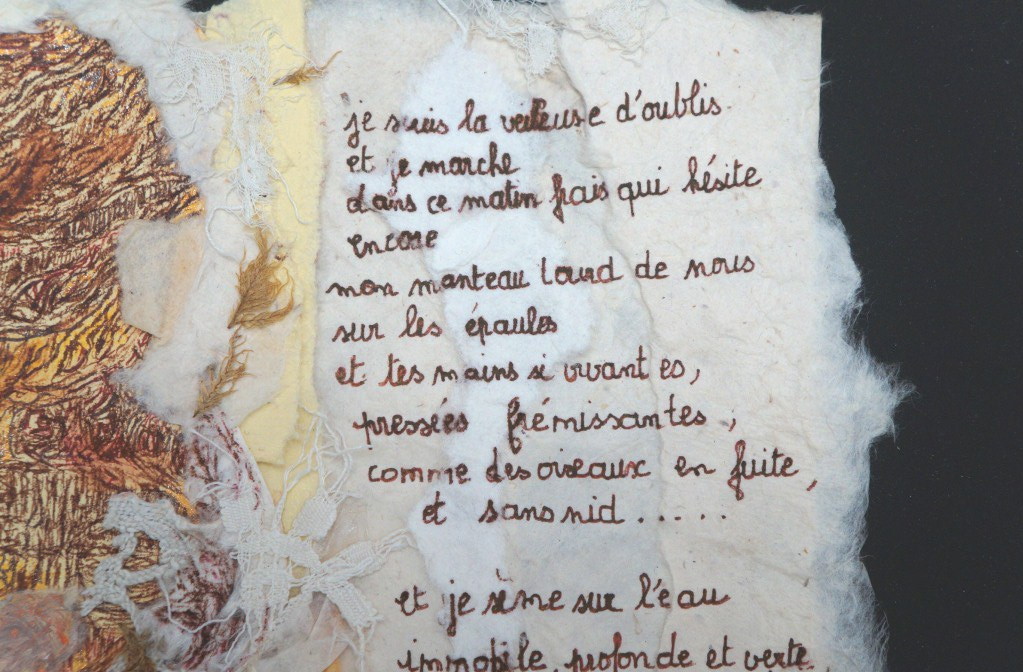 je suis la veilleuse d'oublis
et je marche
dans ce matin frais qui hésite
encore
mon manteau lourd de nous
sur les épaules
et tes mains si vivantes,
pressées frémissantes,
comme des oiseaux en fuite,
et sans nid.....
et je sème sur l'eau
immobile, profonde et verte